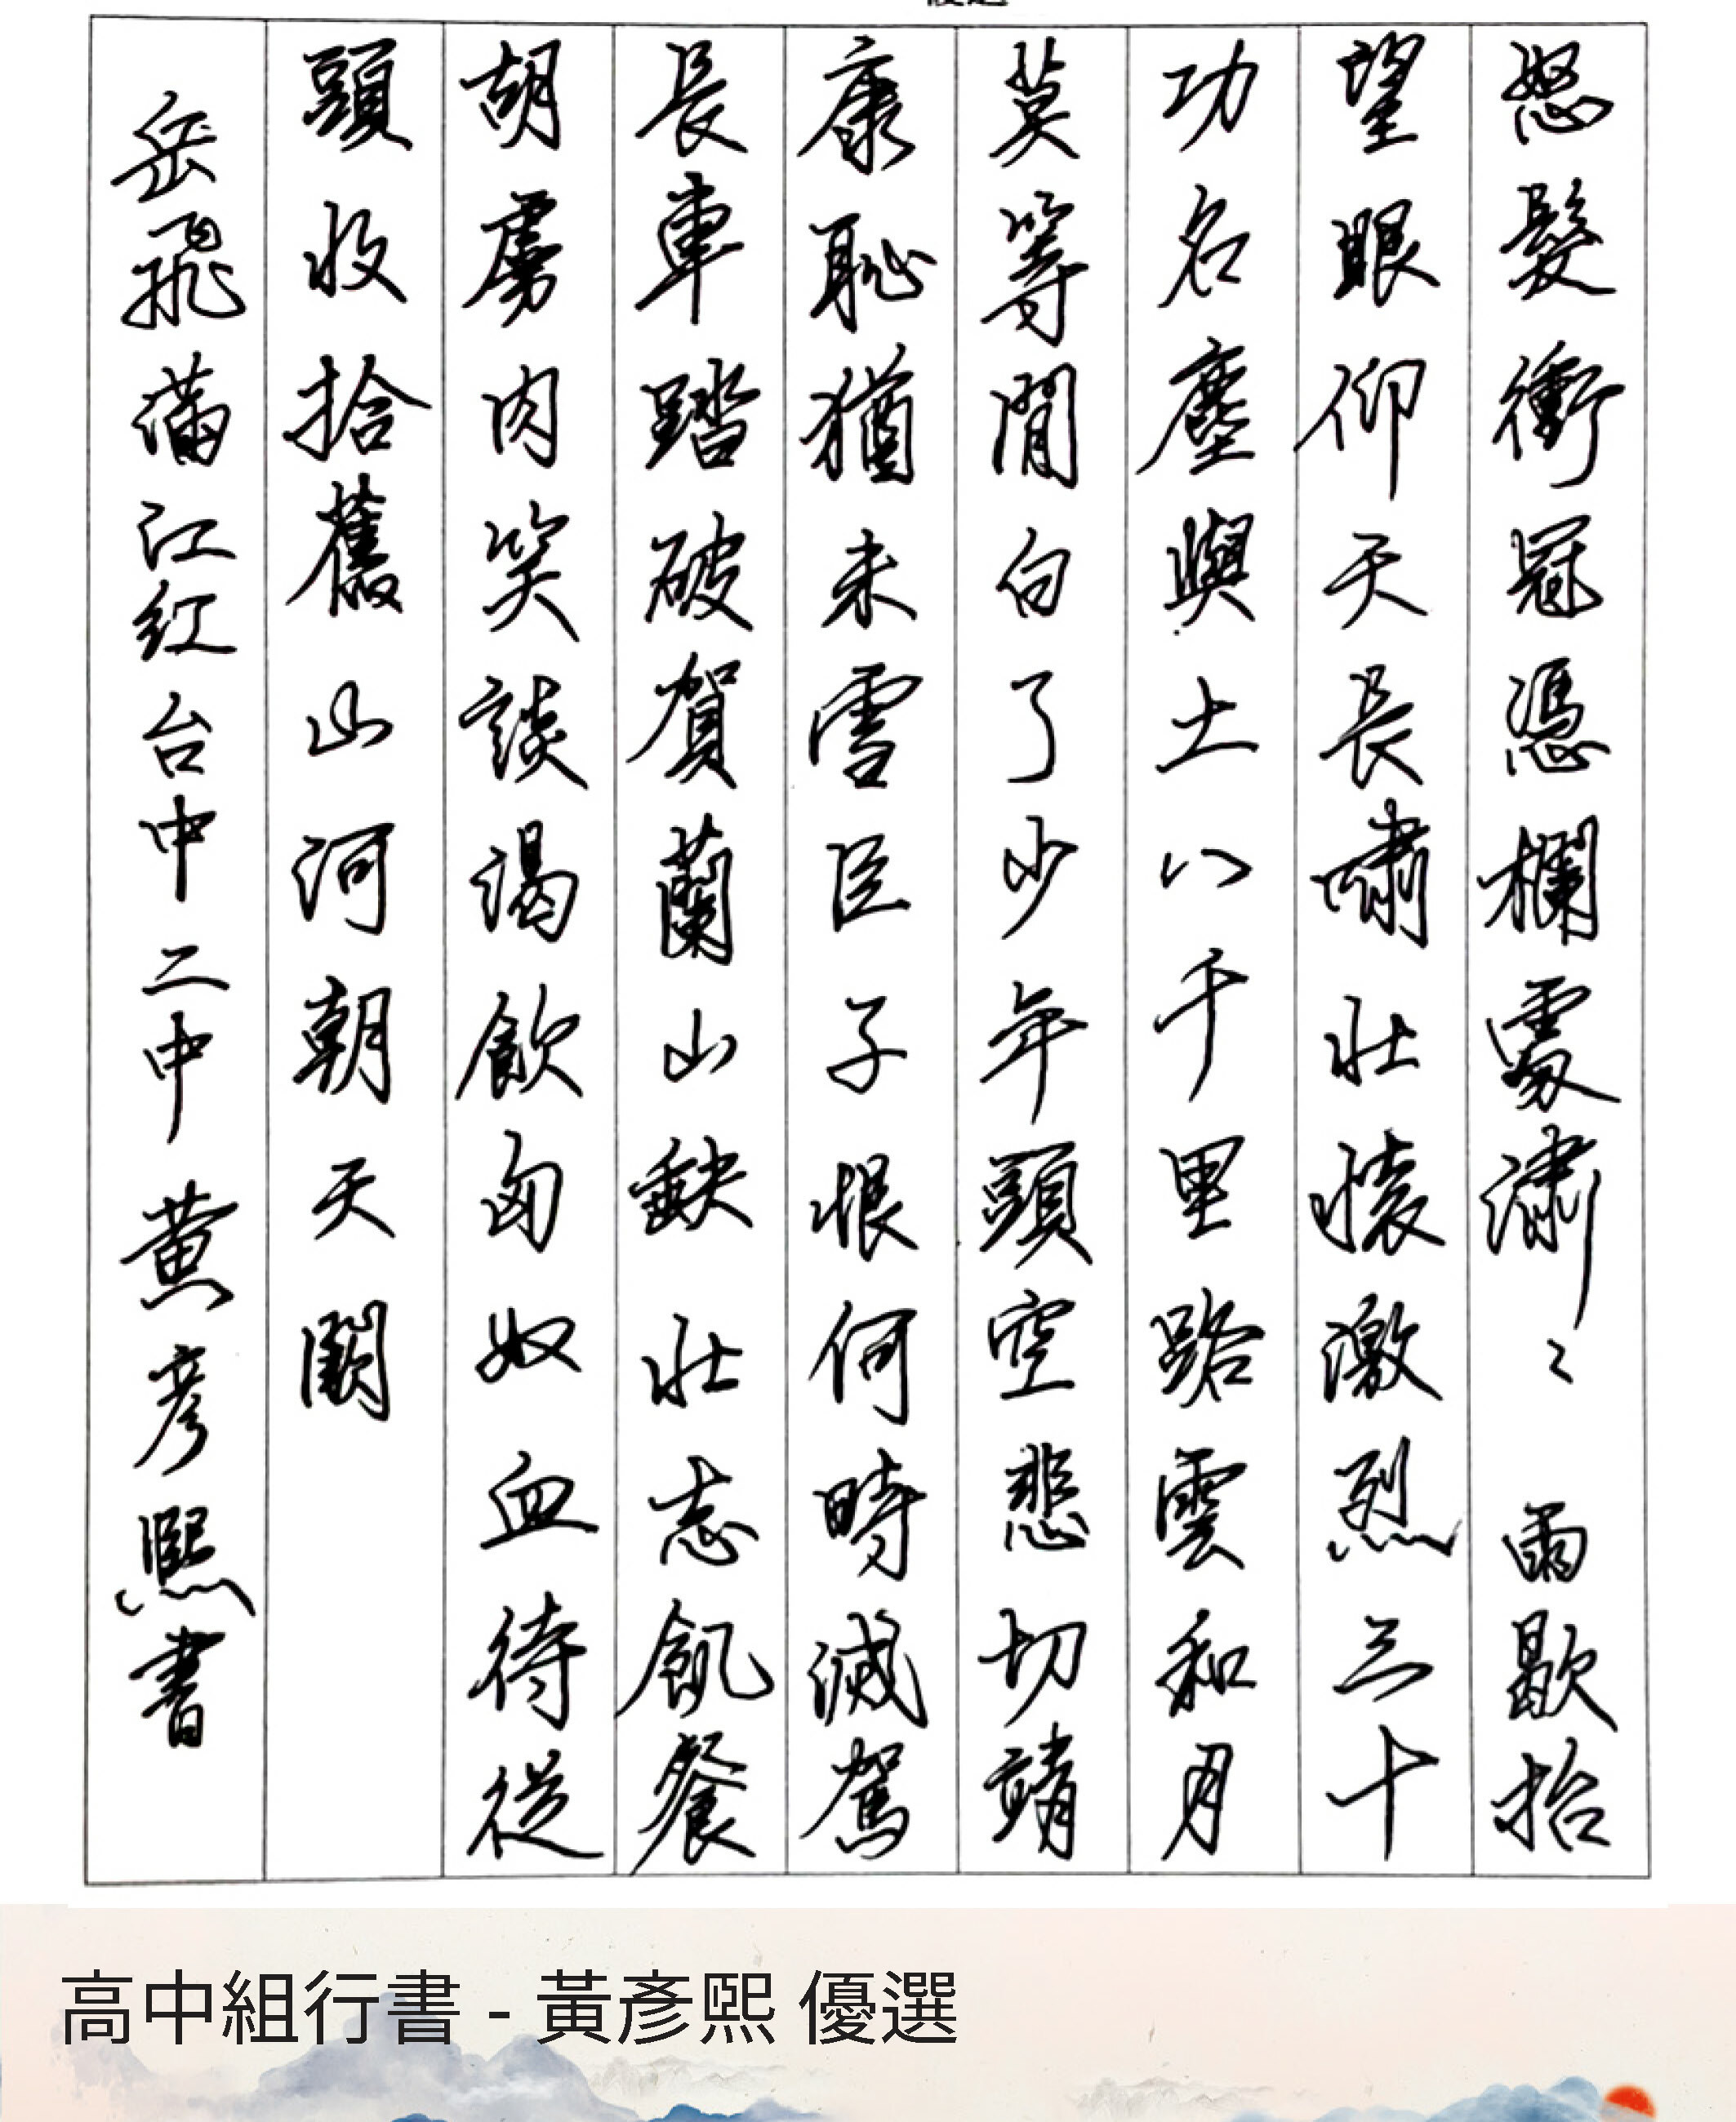 怒髮衝冠憑欄處瀟〻雨歇抬
望眼仰天長嘯壯懷激烈三十
功名塵與土八千里路雲和月
莫等閒白了少年頭空悲切靖
康恥猶未雪臣子恨何時滅駕
長車踏破賀蘭山缺壯志飢餐
胡虜肉笑談渴飲匈奴血待從
頭收拾舊山河朝天闕
岳飛滿江紅台中二中黃彥熙書
高中組行書 - 黃彥熙 優選